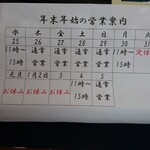 年末年始の営業案内
水 木 金 土 日 月 火
25 26 27 28 29 30 31
11時~ 通常 通常 通常 通常 11時~ 定休
15時 営業 営業 営業 営業 15時
元旦 1月2日 3 4 5
お休み お休み お休み 11時~ 通常
15時 営業